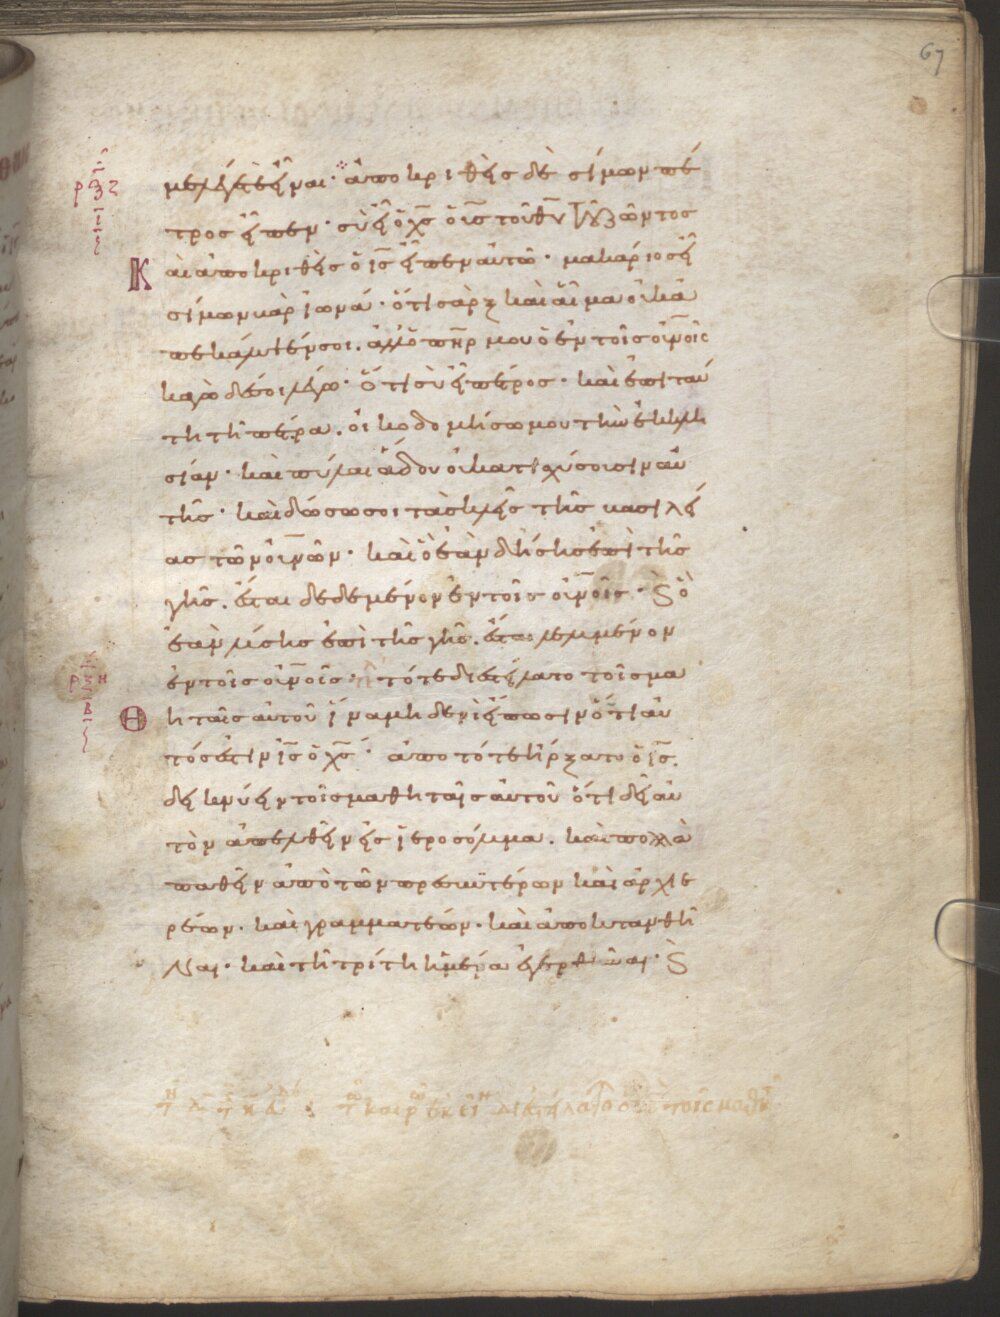 67
με λέγετε εἶναι· ἀποκριθεὶς δὲ σίμων πέ
τρος εἶπεν· σὺ εἶ ὁ χς ὁ υἱς τοῦ θυ τοῦ ζῶντος
Καὶ ἀποκριθεὶς ὁ ις εἶπεν αὐτῶ· μακάριος εἶ
σίμων βὰρ ἰωνά· ὅτι σὰρξ καὶ αἷμα οὐκ ἀ
πεκάλυψέν σοι. ἀλλ' ὁ πηρ μου ὁ ἐν τοῖς οὐνοις
κἀγὼ δέ σοι λέγω· ὅτι σὺ εἶ πέτρος· καὶ ἐπὶ ταύ
τη τῆ πέτρα. οἰκοδομήσω μου τὴν ἐκκλη
σίαν· καὶ πύλαι ἅδου οὐ κατισχύσουσιν αὐ
τῆς· καὶ δώσω σοι τὰς κλεῖς τῆς βασιλεί
ας τῶν οὐνῶν· καὶ ὃ ἐὰν δήσης ἐπὶ τῆς
γῆς. ἔσται δεδεμένον ἐν τοῖς οὐνοῖς· ϗ ὃ
ἐὰν λύσης ἐπὶ τῆς γῆς. ἔσται λελυμένον
ἐν τοῖς οὐνοῖς· τότε διεστείλατο τοῖς μα
Θηταῖς αὐτοῦ ἵνα μηδενὶ εἴπωσιν ὅτι αὐ
τός ἐστιν ις ὁ χς· ἀπὸ τότε ἤρξατο ὁ ις.
δεικνύειν τοῖς μαθηταῖς αὐτοῦ ὅτι δεῖ αὐ
τὸν ἀπελθεῖν εἰς ἱεροσόλυμα. καὶ πολλὰ
παθεῖν ἀπὸ τῶν πρεσβυτέρων καὶ ἀρχιε
ρέων· καὶ γραμματέων· καὶ ἀποκτανθῆ
ναι· καὶ τῆ τρίτη ἡμέρα ἐγερθῆναι· ϗ